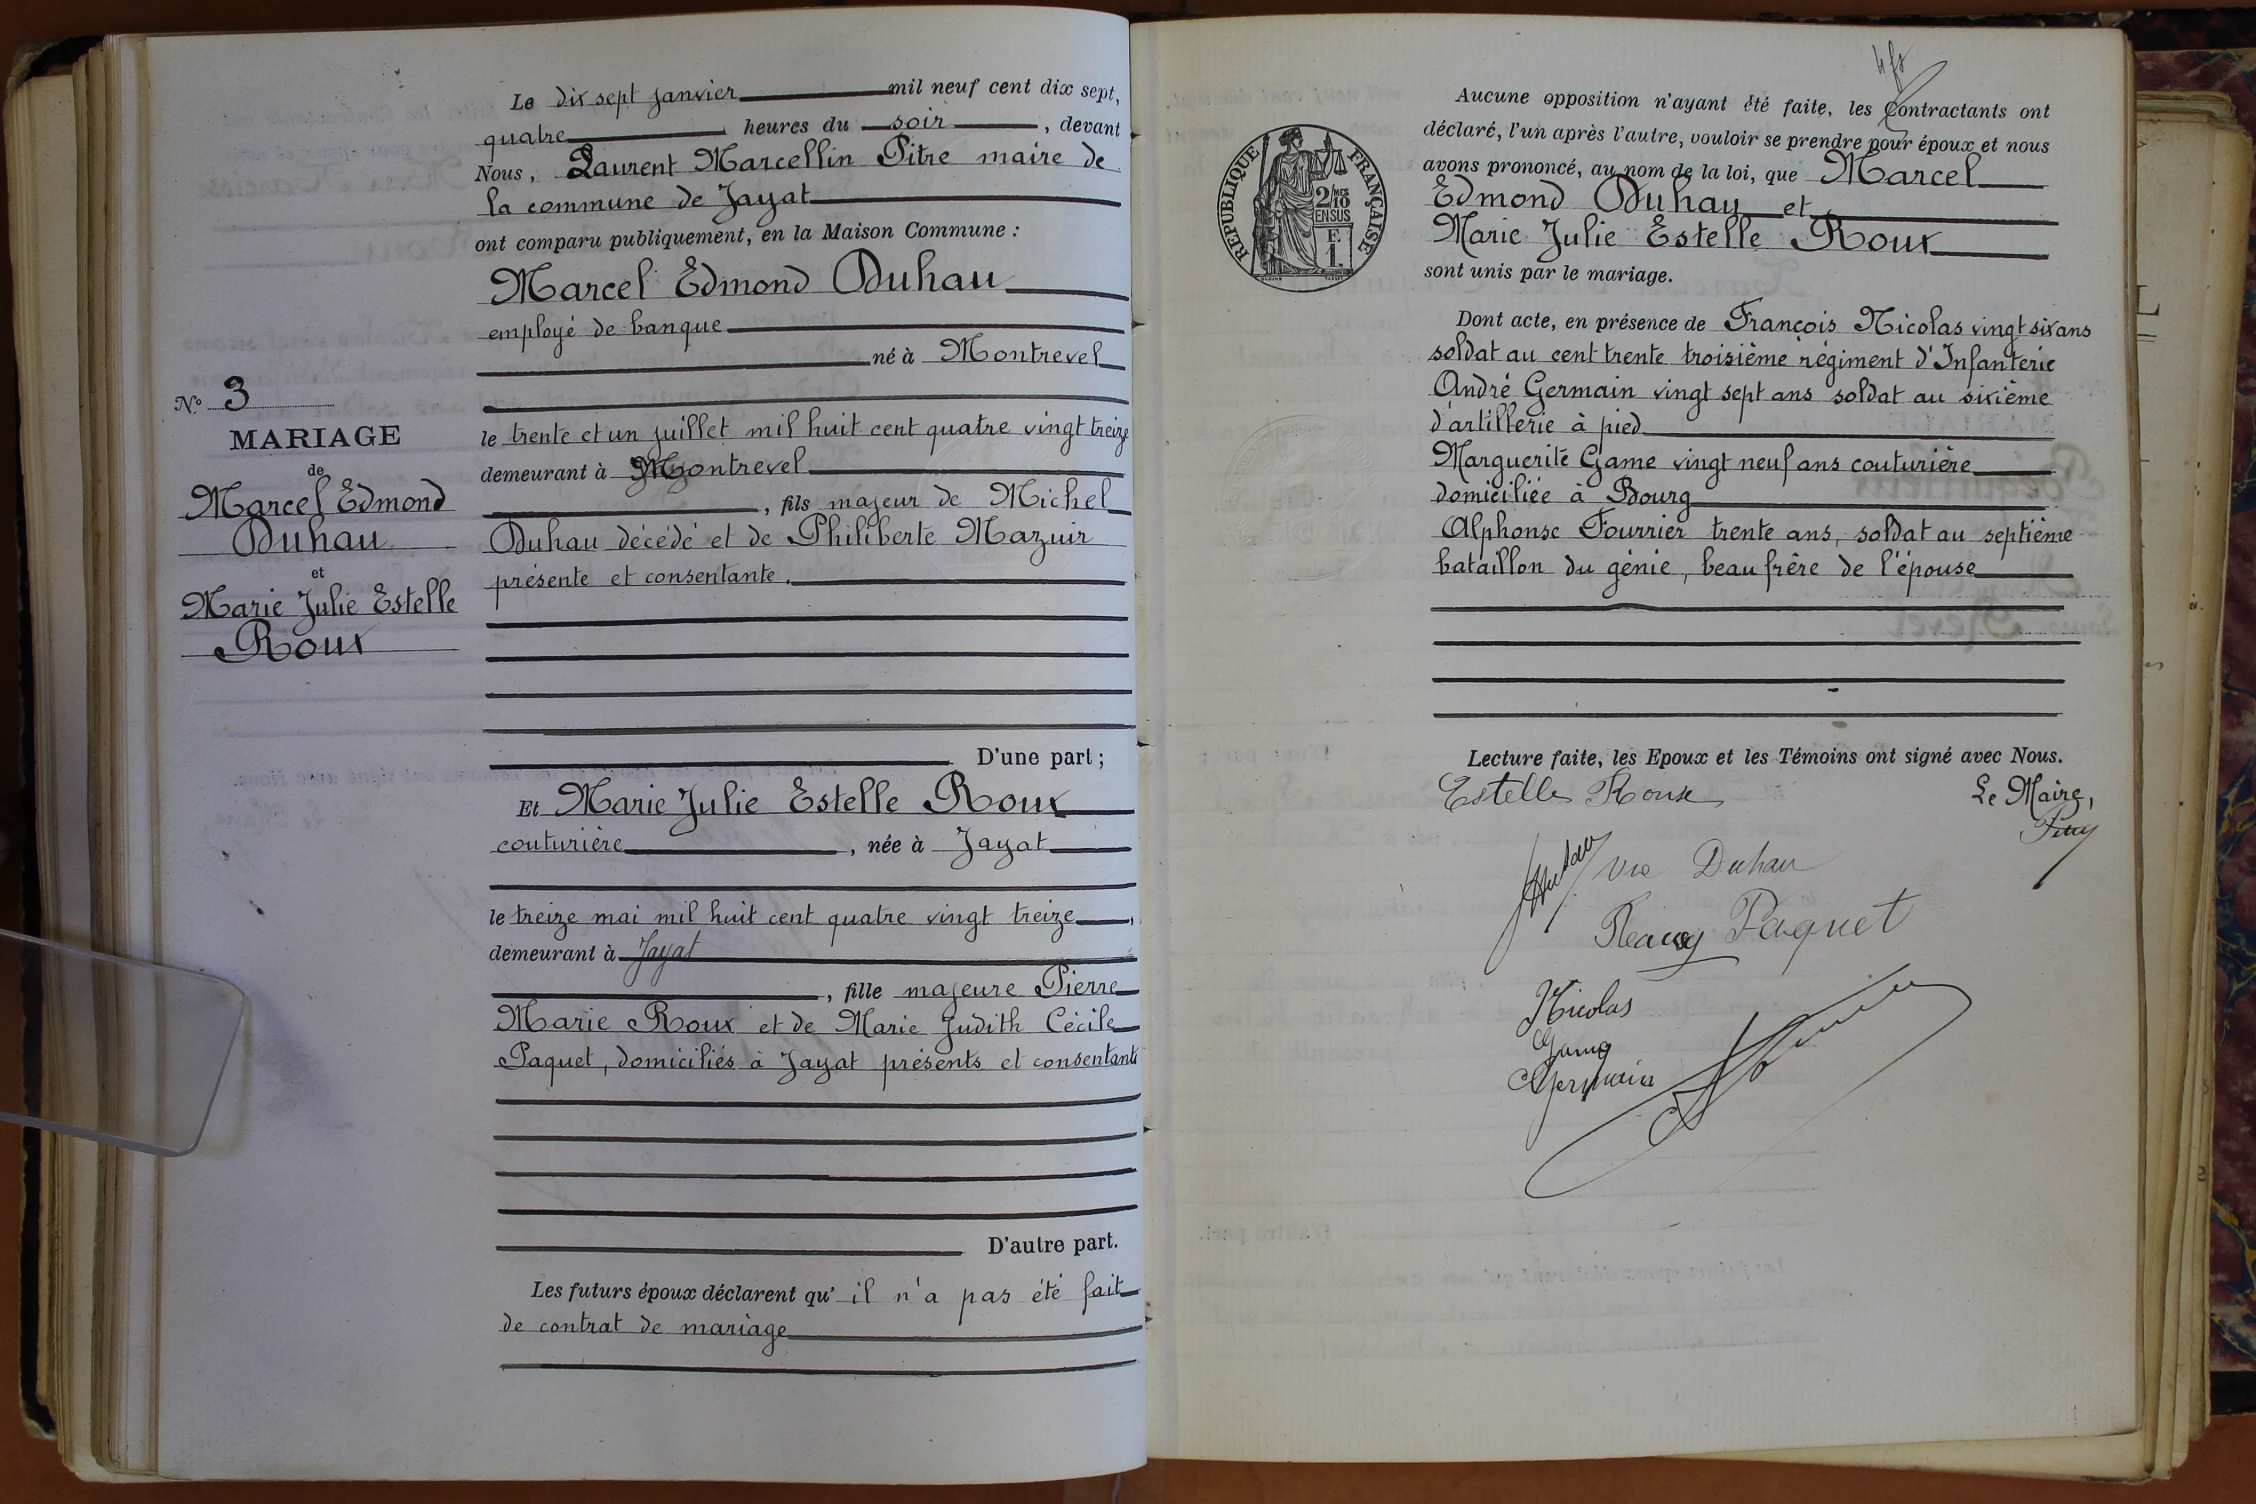 N° 3
MARIAGE
de
Marcel Edmond
Duhau
et
Marie Julie Estelle
Roux
Le dix sept janvier mil neuf cent dix sept,
quatre heures du soir, devant
Nous, Laurent Marcellin Pitre maire de
la commune de Jayat
ont comparu publiquement, en la Maison Commune :
Marcel Edmond Duhau
employé de banque
né à Montrevel
le trente et un juillet mil huit cent quatre vingt treize
demeurant à Montrevel
, fils majeur de Michel
Duhau décédé et de Philiberte Mazuir
présente et consentante.
D'une part ;
Et Marie Julie Estelle Roux
couturière, née à Jayat
le treize mai mil huit cent quatre vingt treize,
demeurant à Jayat
, fille majeure Pierre
Marie Roux et de Marie Judith Cécile
Paquet, domiciliés à Jayat présents et consentants
D'autre part.
Les futurs époux déclarent qu' il n'a pas été fait
de contrat de mariage
4 fs
REPUBLIQUE FRANÇAISE
2/10 MES
EN SUS
F.
1.
Aucune opposition n'ayant été faite, les Contractants ont
déclaré, l'un après l'autre, vouloir se prendre pour époux et nous
avons prononcé, au nom de la loi, que Marcel
Edmond Duhau et
Marie Julie Estelle Roux
sont unis par le mariage.
Dont acte, en présence de François Nicolas vingt six ans
soldat au cent trente troisième régiment d'Infanterie
André Germain vingt sept ans soldat au sixième
d'artillerie à pied
Marguerite Game vingt neuf ans couturière
domiciliée à Bourg
Alphonse Fourrier trente ans, soldat au septième
bataillon du génie, beau frère de l'épouse
Lecture faite, les Epoux et les Témoins ont signé avec Nous.
Estelle Roux
Le Maire,
Duhau
Vve Duhau
Paquet
Nicolas
Game
Germain